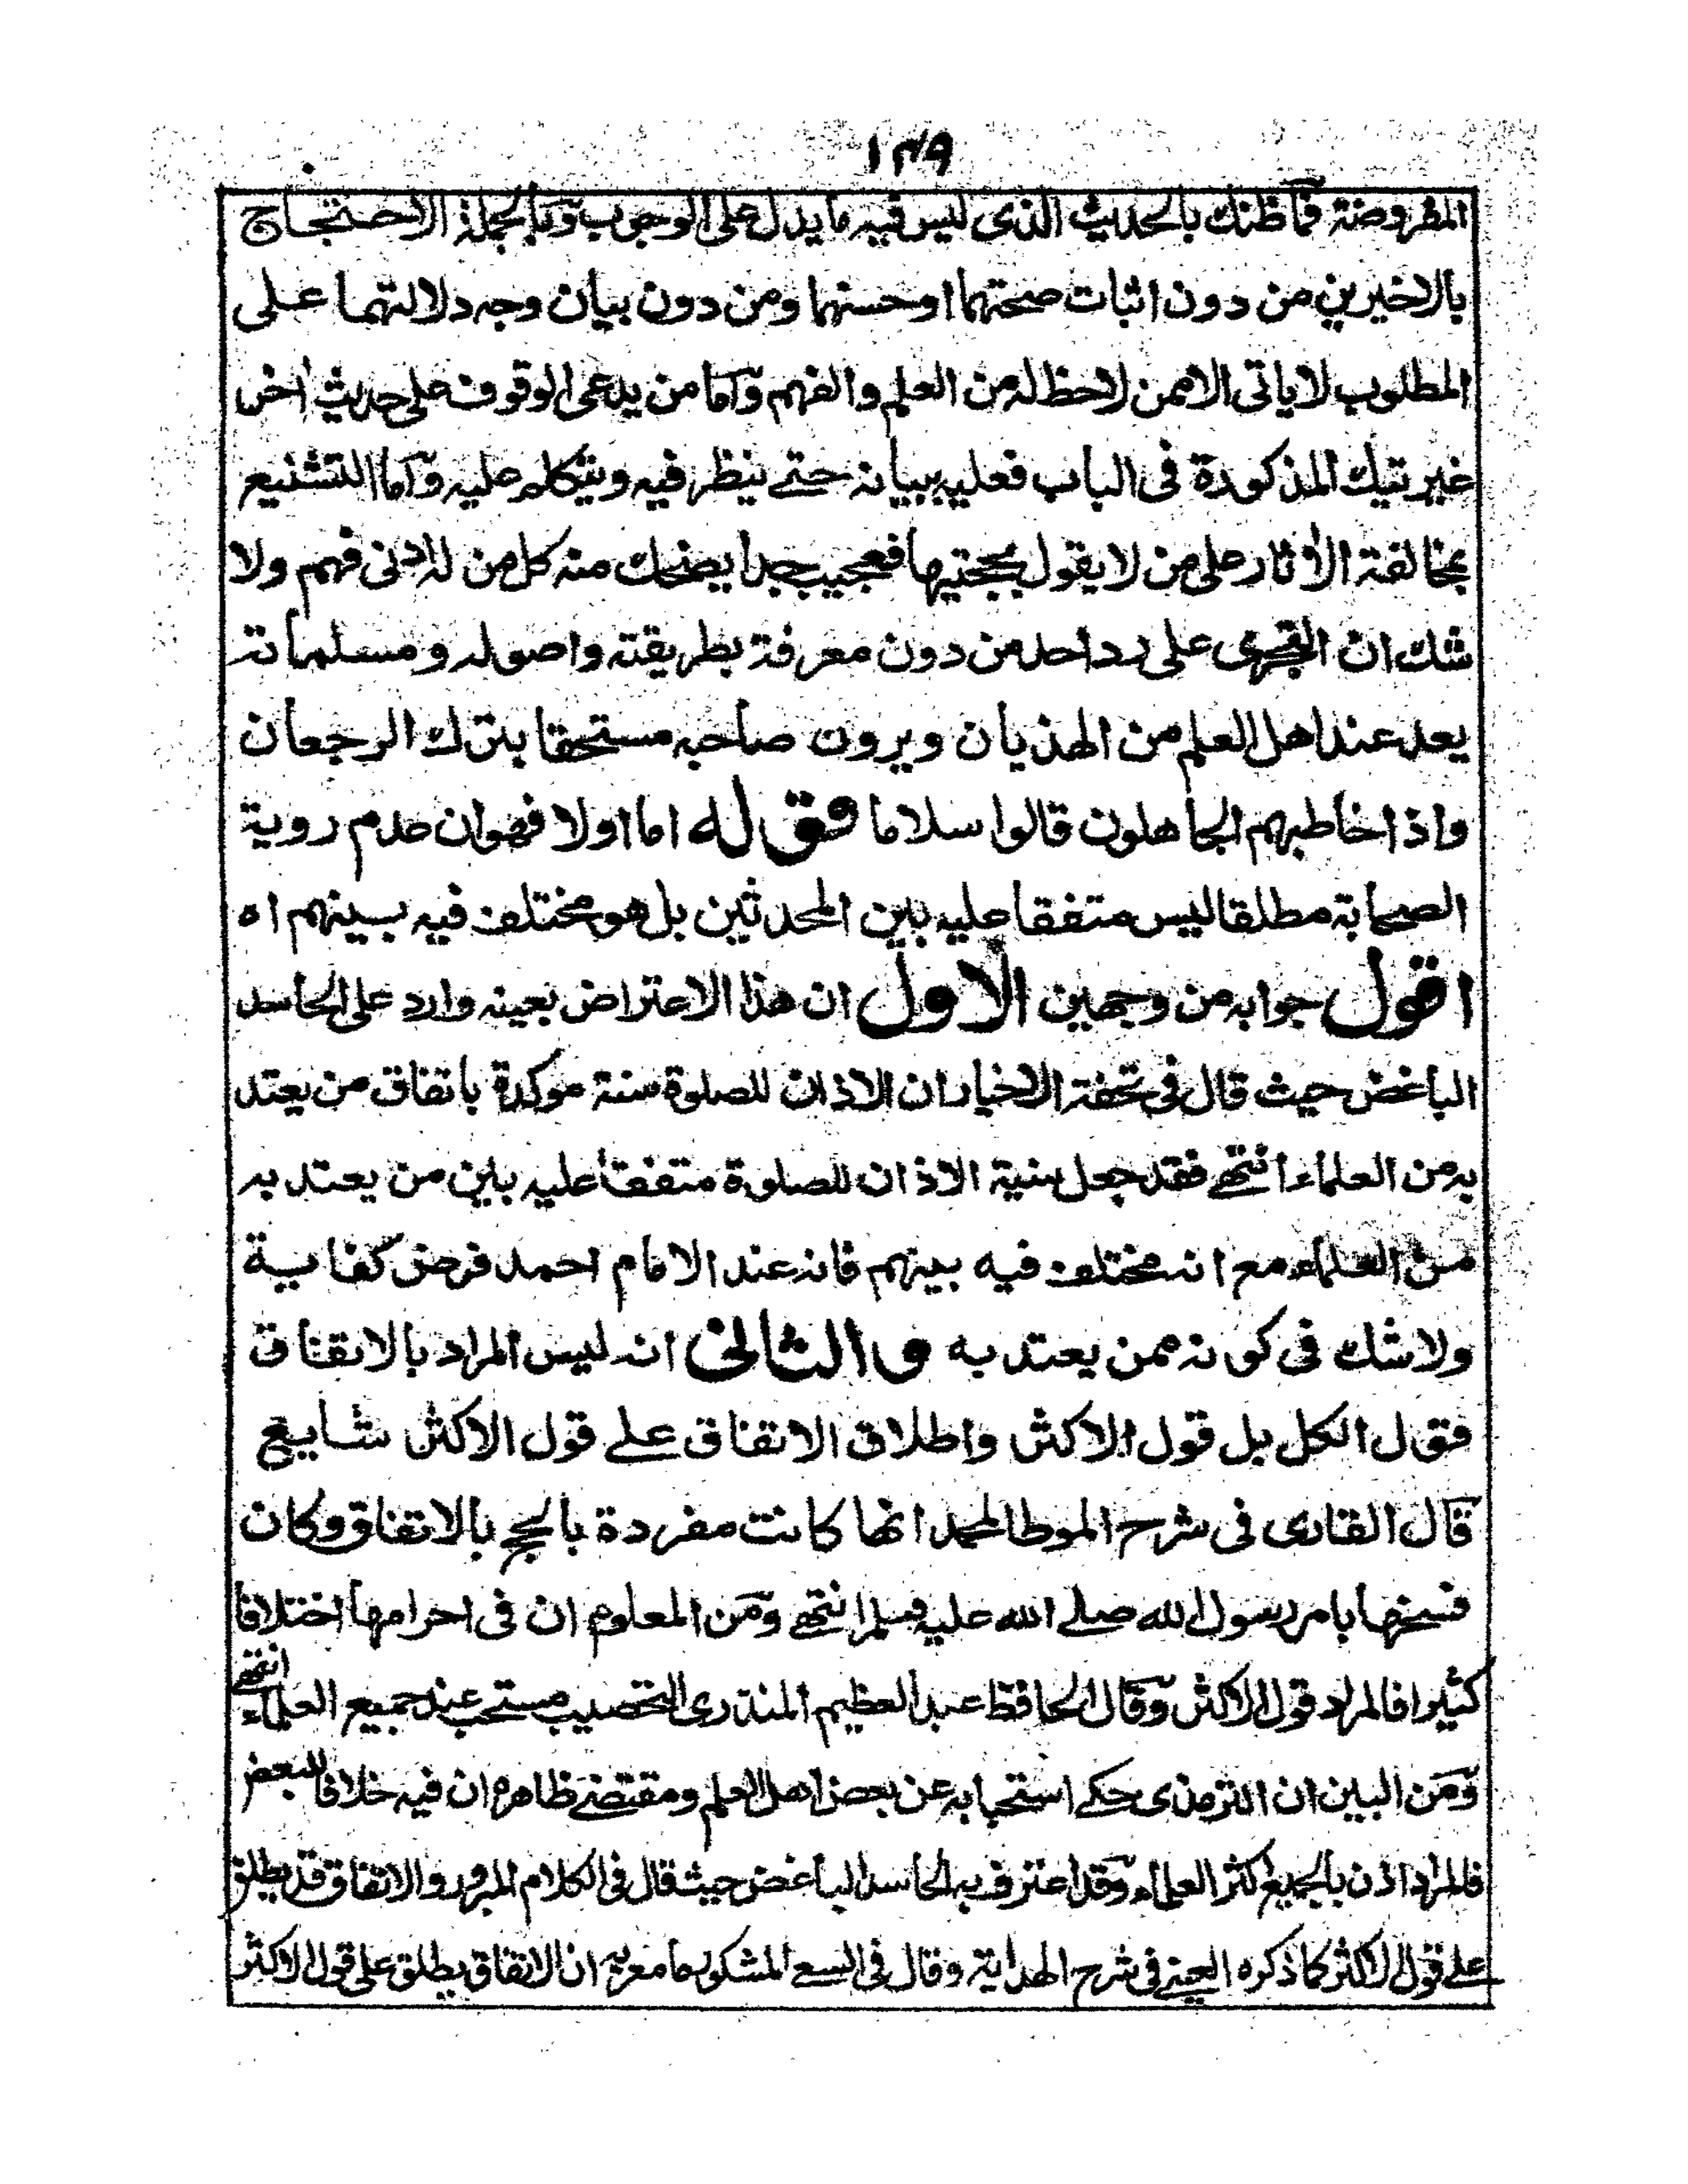 ١٣٩
المفروضة فما ظنك بالحديث الذى ليس فيه ما يدل على الوجوب وبالجملة الاحتجاج
بالاخيرين من دون اثبات صحتهما اوحسنهما ومن دون بيان وجه دلالتهما على
المطلوب لاياتى الاممن لاحظ له من العلم والفهم واما من يدعى الوقوف على حديث اخر
غير تيك المذكورة فى الباب فعليه ببيانه حتے ينظر فيه ويتكلم عليه واما التشنيع
بمخالفة الأثار على من لا يقول بحجتيها فعجيب جدا يضحك منه كل من له ادنى فهم ولا
شك ان التجرى على رد احد من دون معرفة بطريقته واصوله ومسلماته
يعد عند اهل العلم من الهذيان ويرون صاحبه مستحقا بترك الرجعان
واذا خاطبهم الجاهلون قالوا سلاما قوله اما اولا فهوان عدم روية
الصحابة مطلقا ليس متفقا عليه بين المحدثين بل هو مختلف فيه بينهم اه
اقول جوابه من وجهين الاول ان هذا الاعتراض بعينه وارد على الحاسد
الباغض حيث قال فى تحفة الاخيار ان الاذان للصلوة سنة موكدة باتفاق من يعتد
به من العلماء انتهے فقد جعل سنية الاذان للصلوة متفقا عليه بين من يعتد به
من العلماء مع انه مختلف فيه بينهم فانه عند الامام احمد فرض كفاية
ولاشك فى كونه ممن يعتد به والثانى انه ليس المراد بالاتفاق
قول الكل بل قول الاكثر واطلاق الاتفاق علے قول الاكثر شايع
قال القارى فى شرح الموطا لمحمد انها كانت مفردة بالحج بالاتفاق وكان
فسخها بامر رسول الله صلے الله عليه وسلم انتهے ومن المعلوم ان فى احرامها اختلافا
كثيرا فالمراد قول الاكثر وقال الحافظ عبد العظيم المنذرى التحصيب مستحب عند جميع العلماء انتهے
ومن البين ان الترمذى حكے استحبابه عن بعض اهل العلم ومقتضے ظاهره ان فيه خلافا للبعض
فالمراد اذن بالجميع اكثر العلماء وقد اعترف به الحاسد الباغض حيث قال فى الكلام المبرور والاتفاق قد يطلق
علے قول الاكثر كما ذكره العينے فى شرح الهداية وقال فى السعے المشكور ما معربه ان الاتفاق يطلق على قول الاكثر